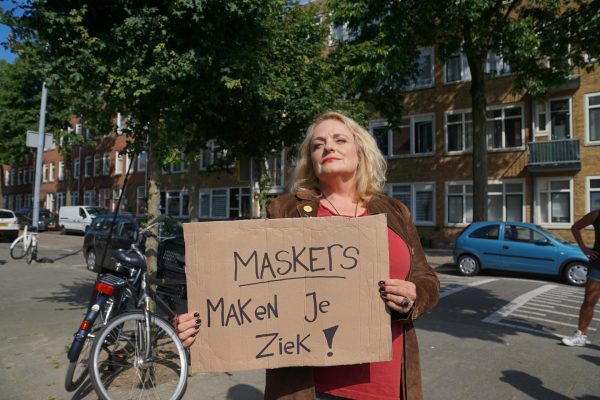 MASKERS
MAKEN JE
ZIEK!